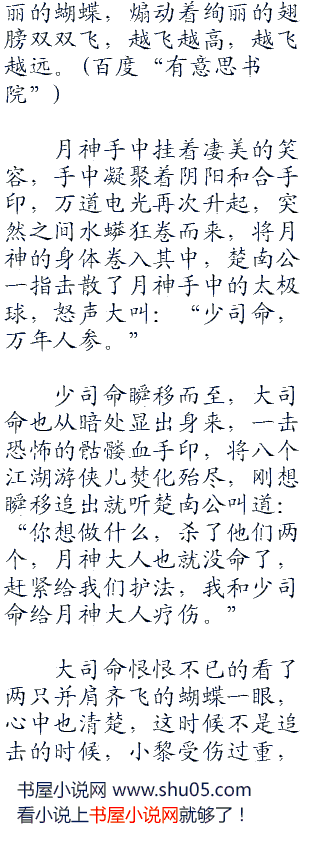 丽的蝴蝶，煽动着绚丽的翅
膀双双飞，越飞越高，越飞
越远。(百度“有意思书
院”)
月神手中挂着凄美的笑
容，手中凝聚着阴阳和合手
印，万道电光再次升起，突
然之间水蟒狂卷而来，将月
神的身体卷入其中，楚南公
一指击散了月神手中的太极
球，怒声大叫：“少司命，
万年人参。”
少司命瞬移而至，大司
命也从暗处显出身来，一击
恐怖的骷髅血手印，将八个
江湖游侠儿焚化殆尽，刚想
瞬移追出就听楚南公叫道：
“你想做什么，杀了他们两
个，月神大人也就没命了，
赶紧给我们护法，我和少司
命给月神大人疗伤。”
大司命恨恨不已的看了
两只并肩齐飞的蝴蝶一眼，
心中也清楚，这时候不是追
击的时候，小黎受伤过重，
书屋小说网 www.shu05.com
看小说上书屋小说网就够了！